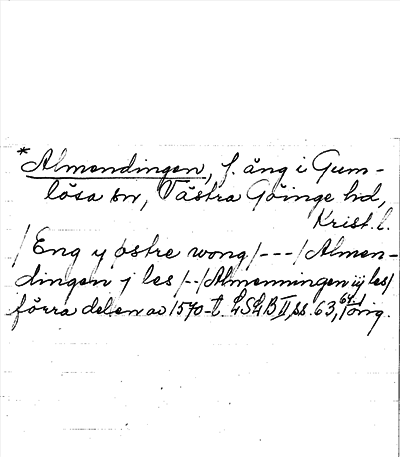 *Almendingen, f. äng i Gum-
lösa sn, Västra Göinge hd,
Krist. l.
/Eng y østre wong/---/Almen-
dingen j les/--/Almenningen iij les/
förra delen av 1570-t. LSLB II ss. 63, 64, orig.